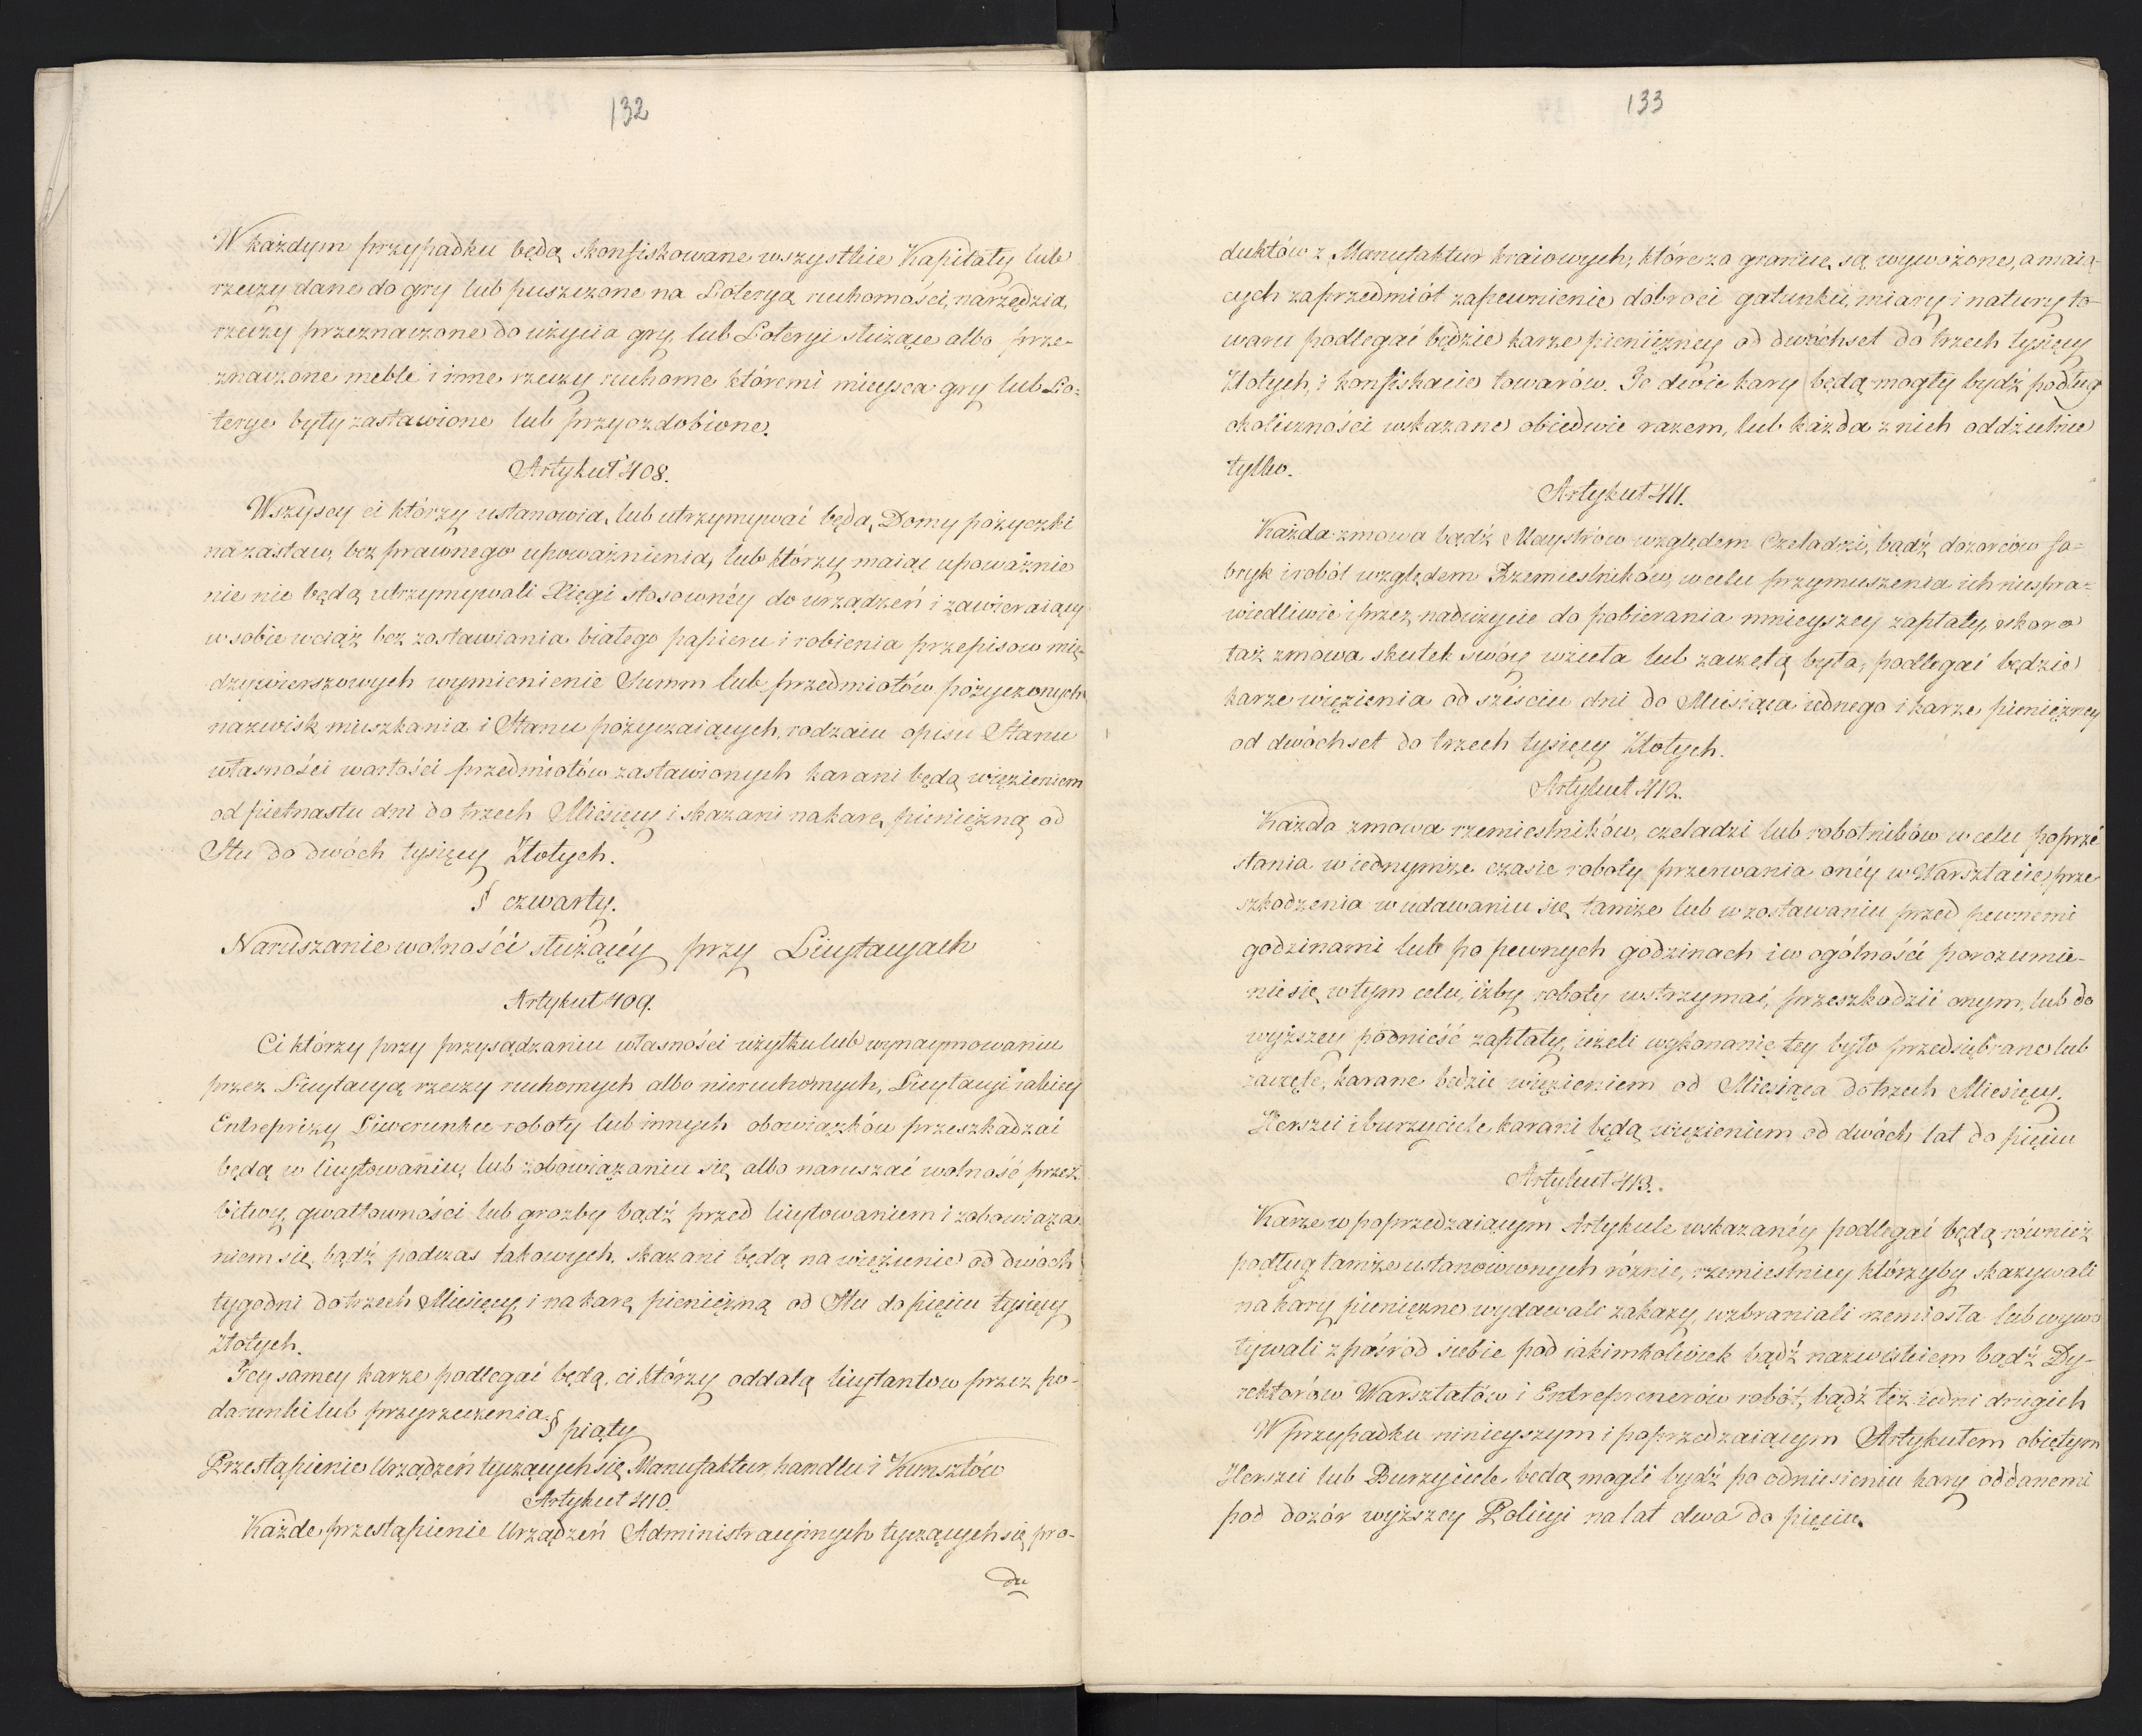 132
W każdym przypadku będą skonfiskowane wszystkie Kapitały lub
rzeczy dane do gry lub puszczone na Loteryą ruchomości, narzędzia,
rzeczy przeznaczone do użycia gry, lub Loteryi służące albo prze-
znaczone meble i inne rzeczy ruchome któremi mieysca gry lub Lo=
terye były zastawione lub przyozdobione.
Artykuł 408.
Wszyscy ci którzy ustanowią, lub utrzymywać będą, Domy pożyczki
na zastaw, bez prawnego upoważnienia, lub którzy maiąc upoważnie
nie nie będą utrzymywali Xięgi stosownéy do urządzeń i zawieraiącey
w sobie wciąż bez zostawiania białego papieru i robienia przepisow mię-
dzywierszowych wymienienie Summ lub przedmiotów pożyczonych
nazwisk mieszkania i Stanu pożyczaiących, rodzaiu opisu Stanu
własności wartości przedmiotów zastawionych karani będą więzieniem
od piętnastu dni do trzech Miesięcy i skazani na karę pieniężną od
Stu do dwóch tysięcy Złotych.
§ czwarty.
Naruszanie wolności służącéy przy Licytacyach
Artykuł 409.
Ci którzy przy przysądzaniu własności użytku lub wynaymowaniu
przez Licytacyą rzeczy ruchomych albo nieruchomych, Licytacyi iakiey
Entreprizy Liwerunku roboty lub innych obowiązków przeszkadzać
będą w licytowaniu, lub zobowiązaniu się albo naruszać wolność przez
bitwy, gwałtowności lub grozby bądź przed licytowaniem i zobowiąza
niem się, bądź podczas takowych, skazani będą na więzienie od dwóch
tygodni do trzech Miesięcy, i na karę pieniężną od Stu do pięciu tysięcy
Złotych.
Tey samey karze podlegać będą, ci którzy oddalą licytantow przez po-
darunki lub przyrzeczenia.
§ piąty
Przestąpienie Urządzeń tyczących się Manufaktur, handlu i Kunsztów
Artykuł 410.
Każde przestąpienie Urządzeń Administracyinych tyczących się pro-
du
133
duktów z Manufaktur kraiowych, które za granicę są wywożone, a maią-
cych za przedmiót zapewnienie dobroci gatunku, miary i natury to-
waru podlegać będzie karze pieniężney od dwóchset do trzech tysięcy
Złotych, i konfiskacie towarów. Te dwie kary będą mogły bydź podług
okoliczności wskazane obiedwie razem, lub każda z nich oddzielnie
tylko.
Artykuł 411.
Każda zmowa bądź Maystrów względem Czeladzi, bądź dozorców fa=
bryk i robót względem Rzemieslników, w celu przymuszenia ich niespra=
wiedliwie i przez nadużycie do pobierania mnieyszey zapłaty, skoro
taż zmowa skutek swóy wzieła lub zaczętą była, podlegać będzie
karze więzienia od sześciu dni do Miesiąca iednego i karze pieniężney
od dwóchset do trzech tysięcy Złotych.
Artykuł 412.
Każda zmowa rzemieslników, czeladzi lub robotników w celu poprze
stania w iednymże czasie roboty przerwania onéy w Warsztacie, prze
szkodzenia w udawaniu się tamże lub w zostawaniu przed pewnemi
godzinami lub po pewnych godzinach i w ogólności porozumie-
nie się w tym celu, iżby roboty wstrzymać, przeszkodzić onym, lub do
wyższey podnieść zapłaty, ieżeli wykonanie tey było przedsiębrane lub
zaczęte, karane będzie więzieniem od Miesiąca do trzech Miesięcy.
Herszci i burzyciele karani będą więzieniem od dwóch lat do pięciu
Artykuł 413.
Karze w poprzedzaiącym Artykule wskazanéy podlegać będą również
podług tamże ustanowionych różnic, rzemieslnicy którzyby skazywali
na kary pieniężne wydawali zakazy, wzbraniali rzemiosła lub wywo
ływali z pośród siebie pod iakimkolwiek bądź nazwiskiem bądź Dy-
rektorów Warsztatów i Entreprenerów robót, bądź też iedni drugich
W przypadku ninieyszym i poprzedzaiącym Artykułem obiętym
Herszci lub Burzyciele będą mogli bydź po odniesieniu kary oddanemi
pod dozór wyższey Policyi na lat dwa do pięciu.